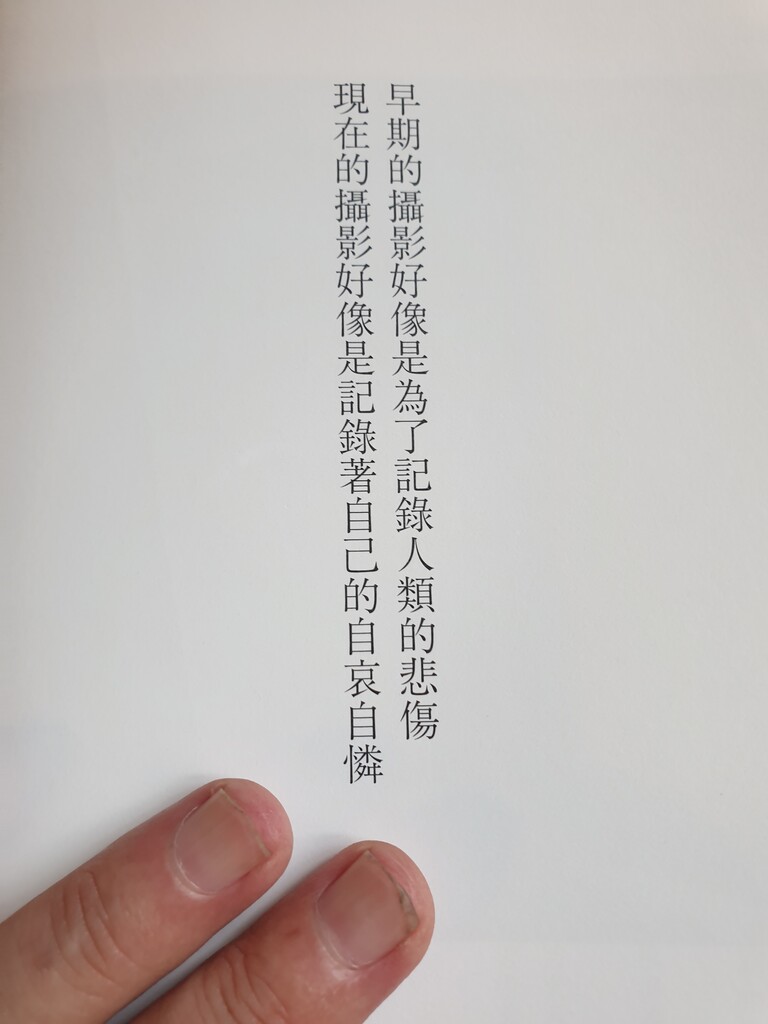 早期的攝影好像是為了記錄人類的悲傷
現在的攝影好像是記錄著自己的自哀自憐